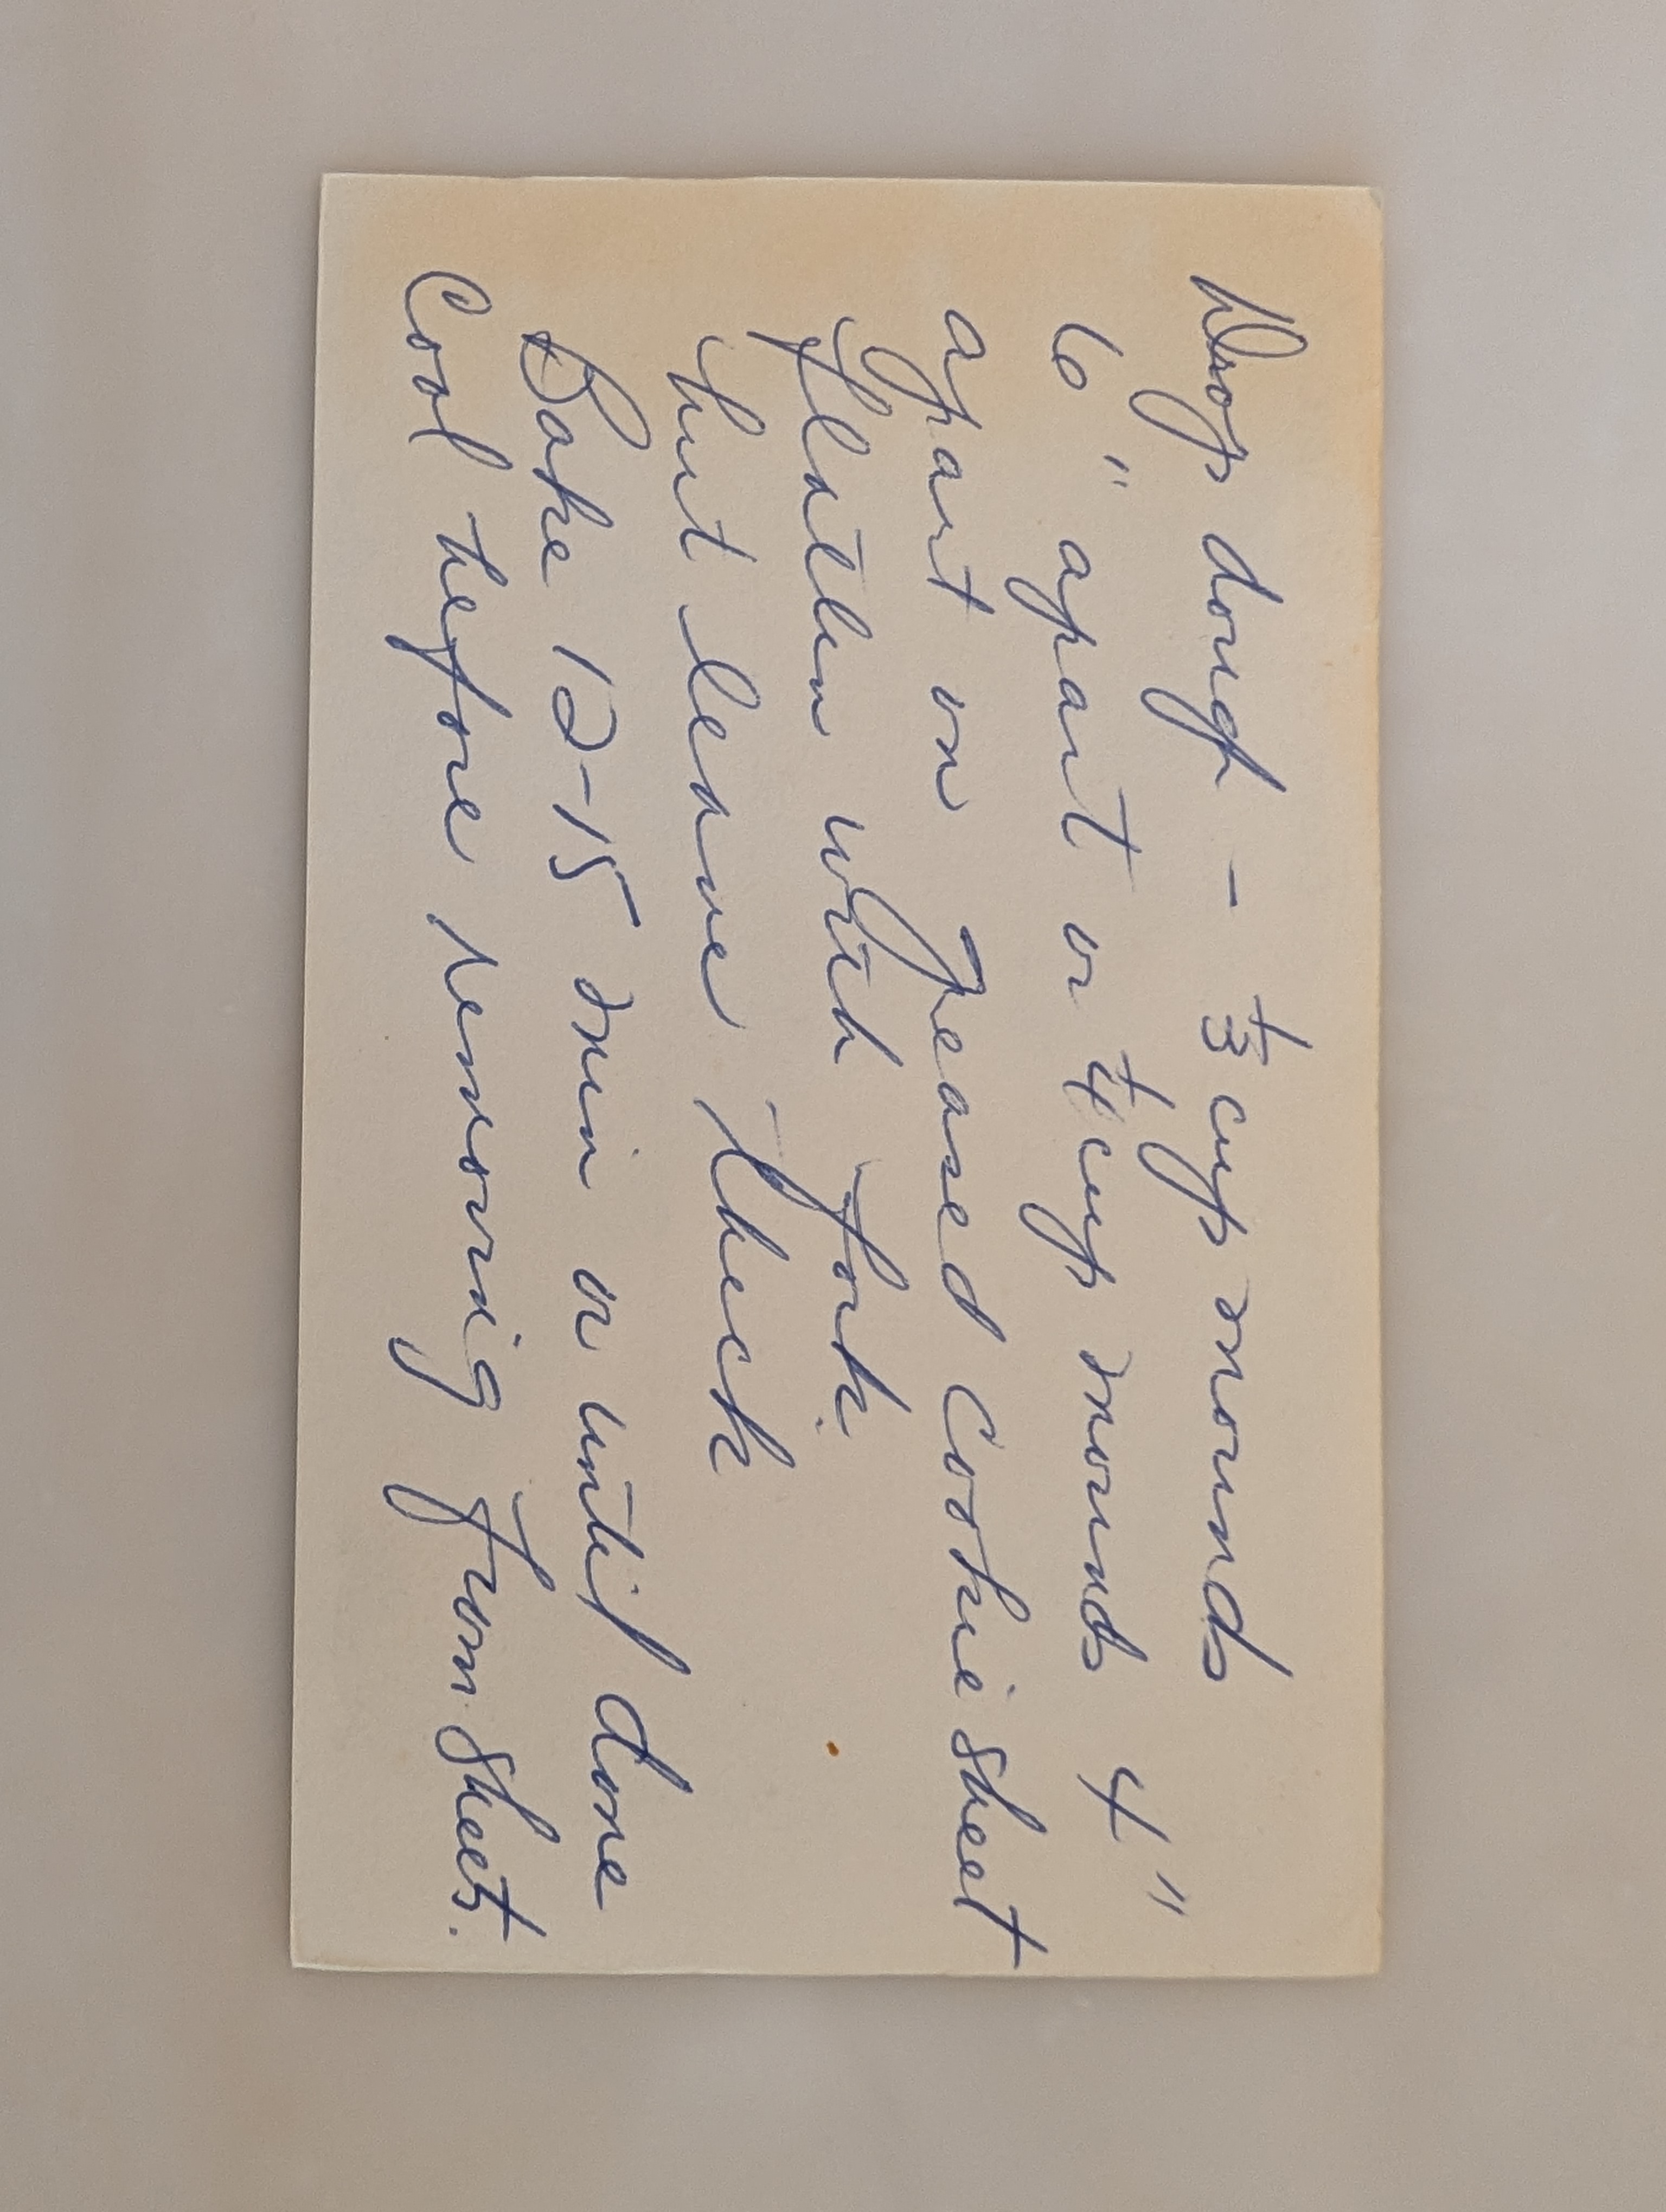 Drop dough - 1/3 cup mounds
6" apart or 1/4 cup mounds 4"
apart on greased cookie sheet
flatten with fork.
but leave thick
Bake 12-15 min or until done
Cool before removing from sheets.